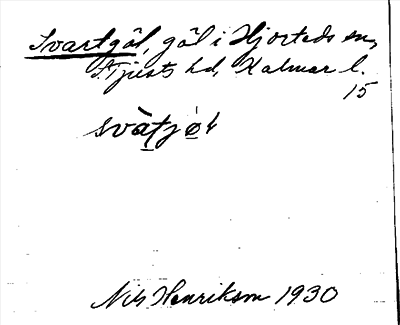 Svartgöl, göl i Hjorteds sn,
S. Tjusts hd, Kalmar l.
15
svàtjö̀l
Nils Henriksm 1930